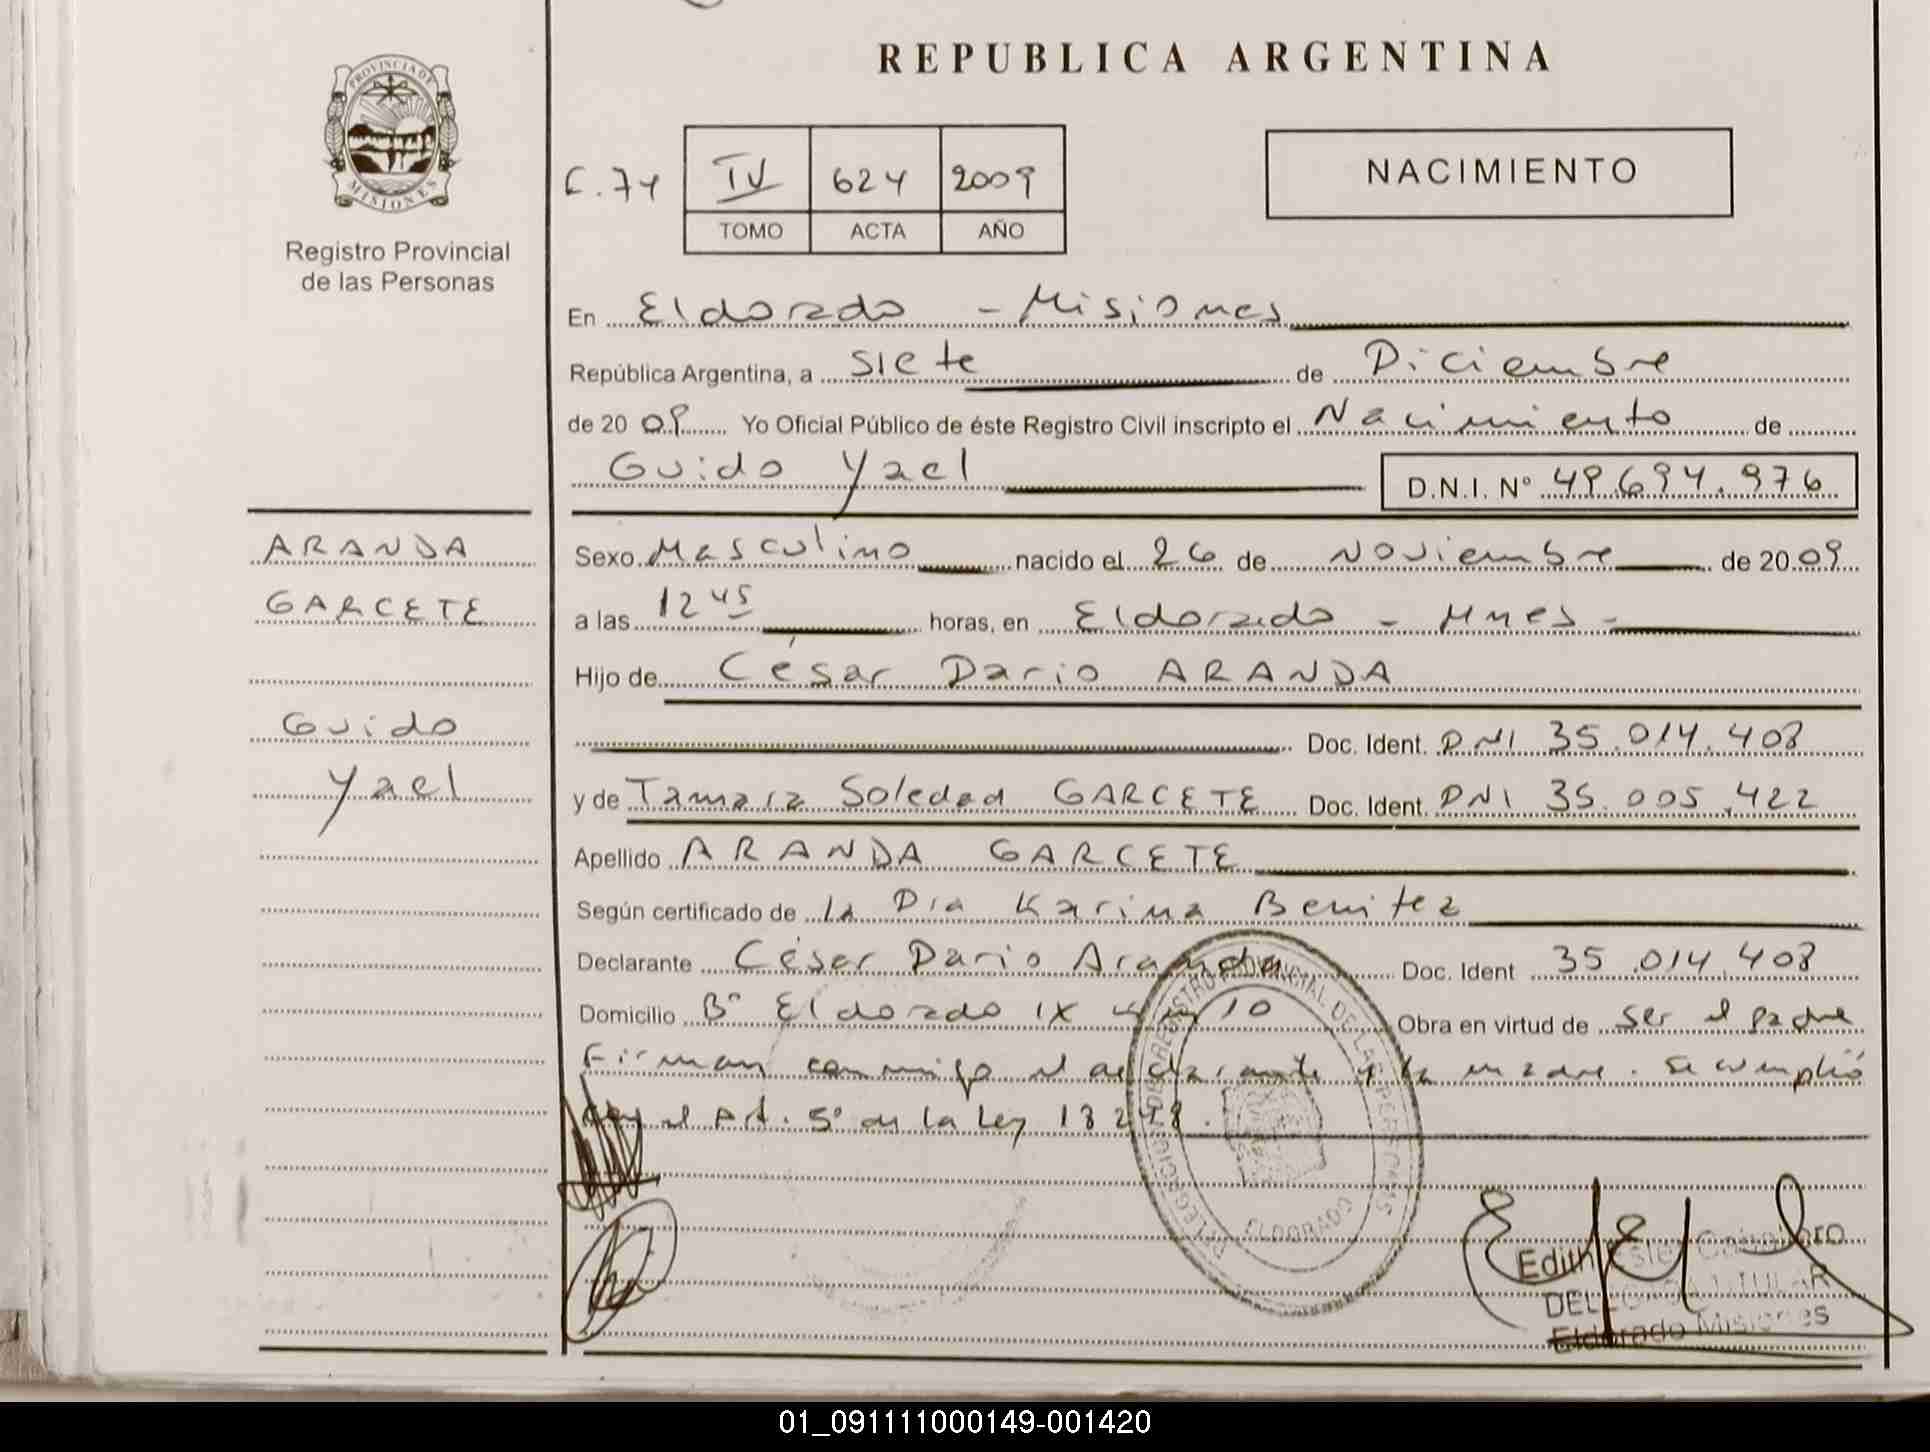 REPUBLICA ARGENTINA
PROVINCIA DE MISIONES
Registro Provincial
de las Personas
NACIMIENTO
IV 624 2009
TOMO ACTA AÑO
En Eldorado - Misiones
República Argentina, a Siete de Diciembre
de 2009 Yo Oficial Público de éste Registro Civil inscripto el Nacimiento de
Guido Yael D.N.I. N° 49.694.976
ARANDA
GARCETE
Guido
Yael
Sexo Masculino nacido el 26 de Noviembre de 2009
a las 12 45 horas, en Eldorado - Mnes -
Hijo de César Dario ARANDA
Doc. Ident. DNI 35.014.408
y de Tamara Soledad GARCETE Doc. Ident. DNI 35.005.422
Apellido ARANDA GARCETE
Según certificado de la Dra Karina Benitez
Declarante César Dario Aranda Doc. Ident 35.014.408
Domicilio B° Eldorado IX 10 Obra en virtud de ser el padre
Firman conmigo el declarante y la madre. Se cumplió
con el Art. 5° de la Ley 18248.
REGISTRO PROVINCIAL DE LAS PERSONAS
ELDORADO
Edith
Eldorado Misiones
01_091111000149-001420